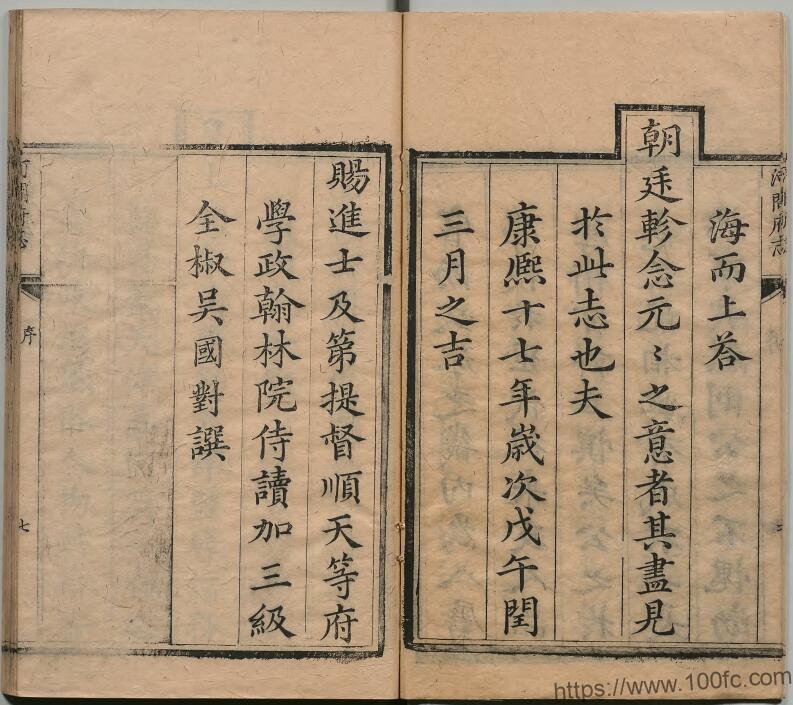 河間府志
海而上荅
朝廷軫念元〻之意者其盡見
扵此志也夫
康熈十七年歲次戊午閏
三月之吉
賜進士及第提督順天等府
學政翰林院侍讀加三級
全椒吳國對譔
序
七
https://www.100fc.com/